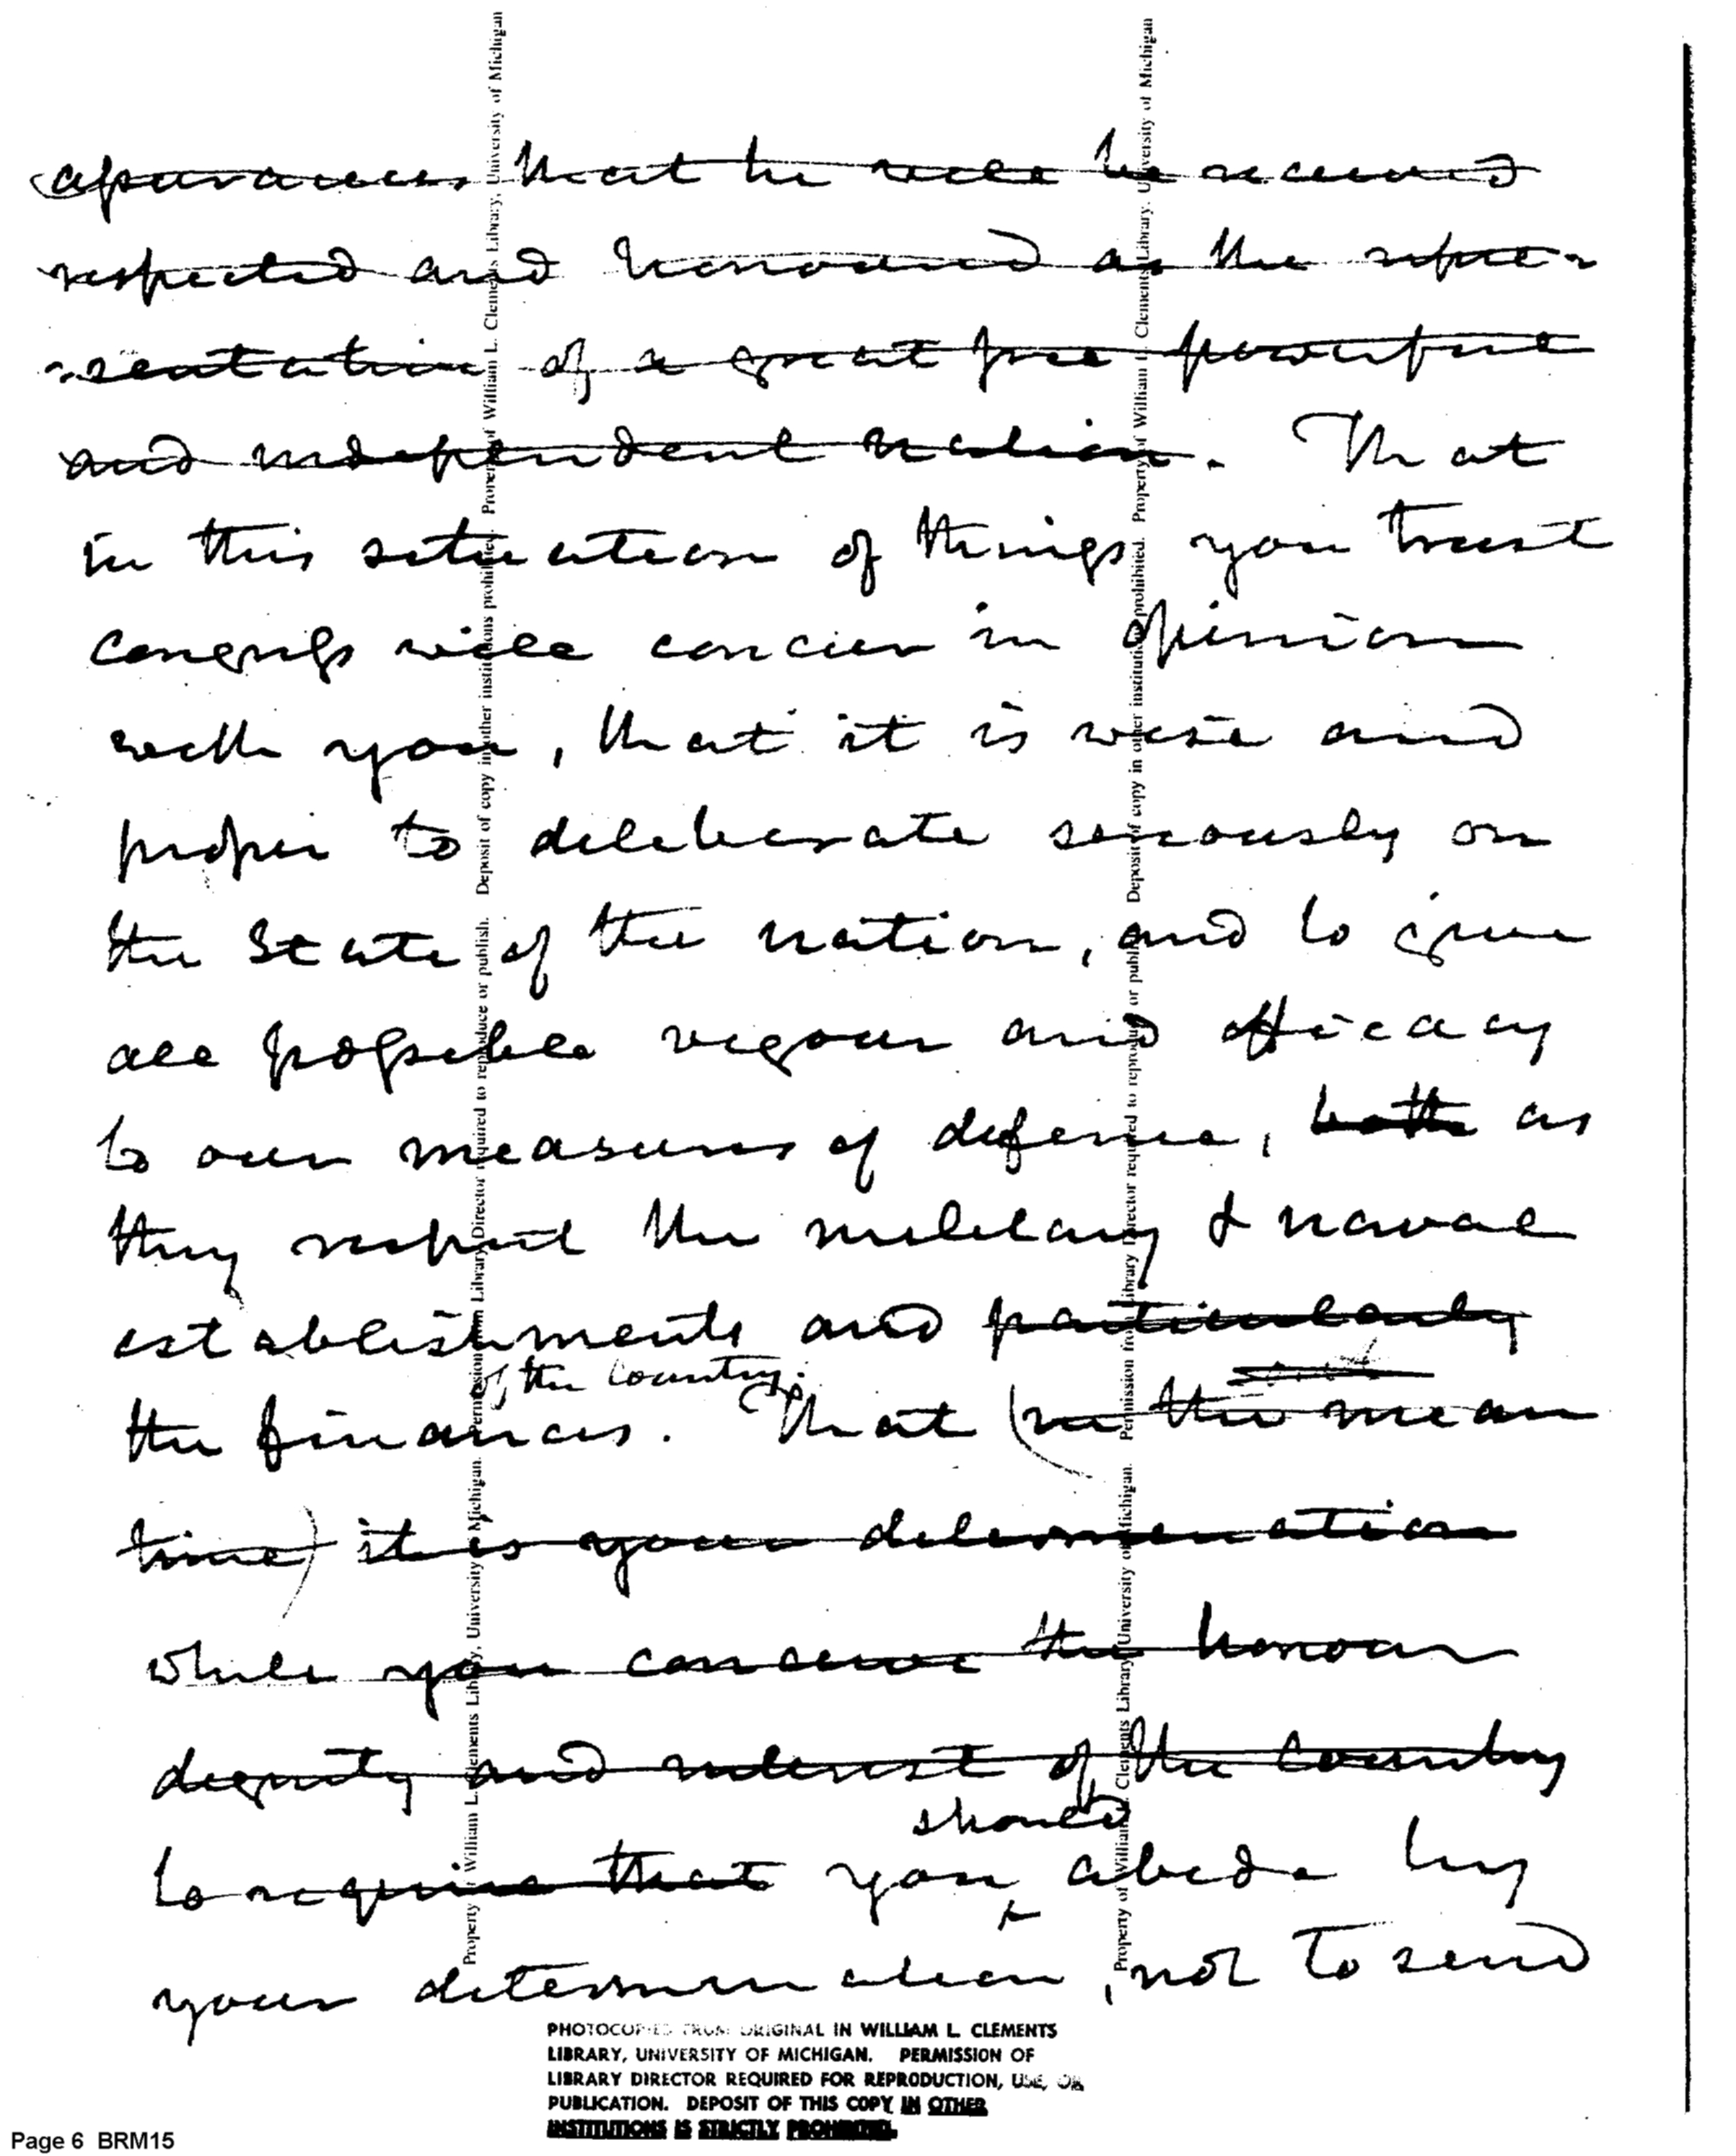 assurances that he will be received
respected and honoured as the repre-
-sentative of a great free powerful
and independent nation. That
in this situation of things you trust
congress will concur in opinion
with you, that it is wise and
proper to deliberate seriously on
the State of the nation, and to give
all possible vigour and efficacy
to our measures of defence, both as
they respect the military & naval
establishments and particularly
of the Country.
the finances. That (in the mean
time) it is your determination
while you conceive the honour
dignity and interest of the Country
should
to require that you abide by
your determination, not to send
PHOTOCOPIED FROM ORIGINAL IN WILLIAM L. CLEMENTS
LIBRARY, UNIVERSITY OF MICHIGAN. PERMISSION OF
LIBRARY DIRECTOR REQUIRED FOR REPRODUCTION, USE, OR
PUBLICATION. DEPOSIT OF THIS COPY IN OTHER
INSTITUTIONS IS STRICTLY PROHIBITED.
Page 6 BRM15
Property of William L. Clements Library, University of Michigan. Permission from Library Director required to reproduce or publish. Deposit of copy in other institutions prohibited. Property of William L. Clements Library, University of Michigan
Property of William L. Clements Library, University of Michigan. Permission from Library Director required to reproduce or publish. Deposit of copy in other institutions prohibited. Property of William L. Clements Library, University of Michigan